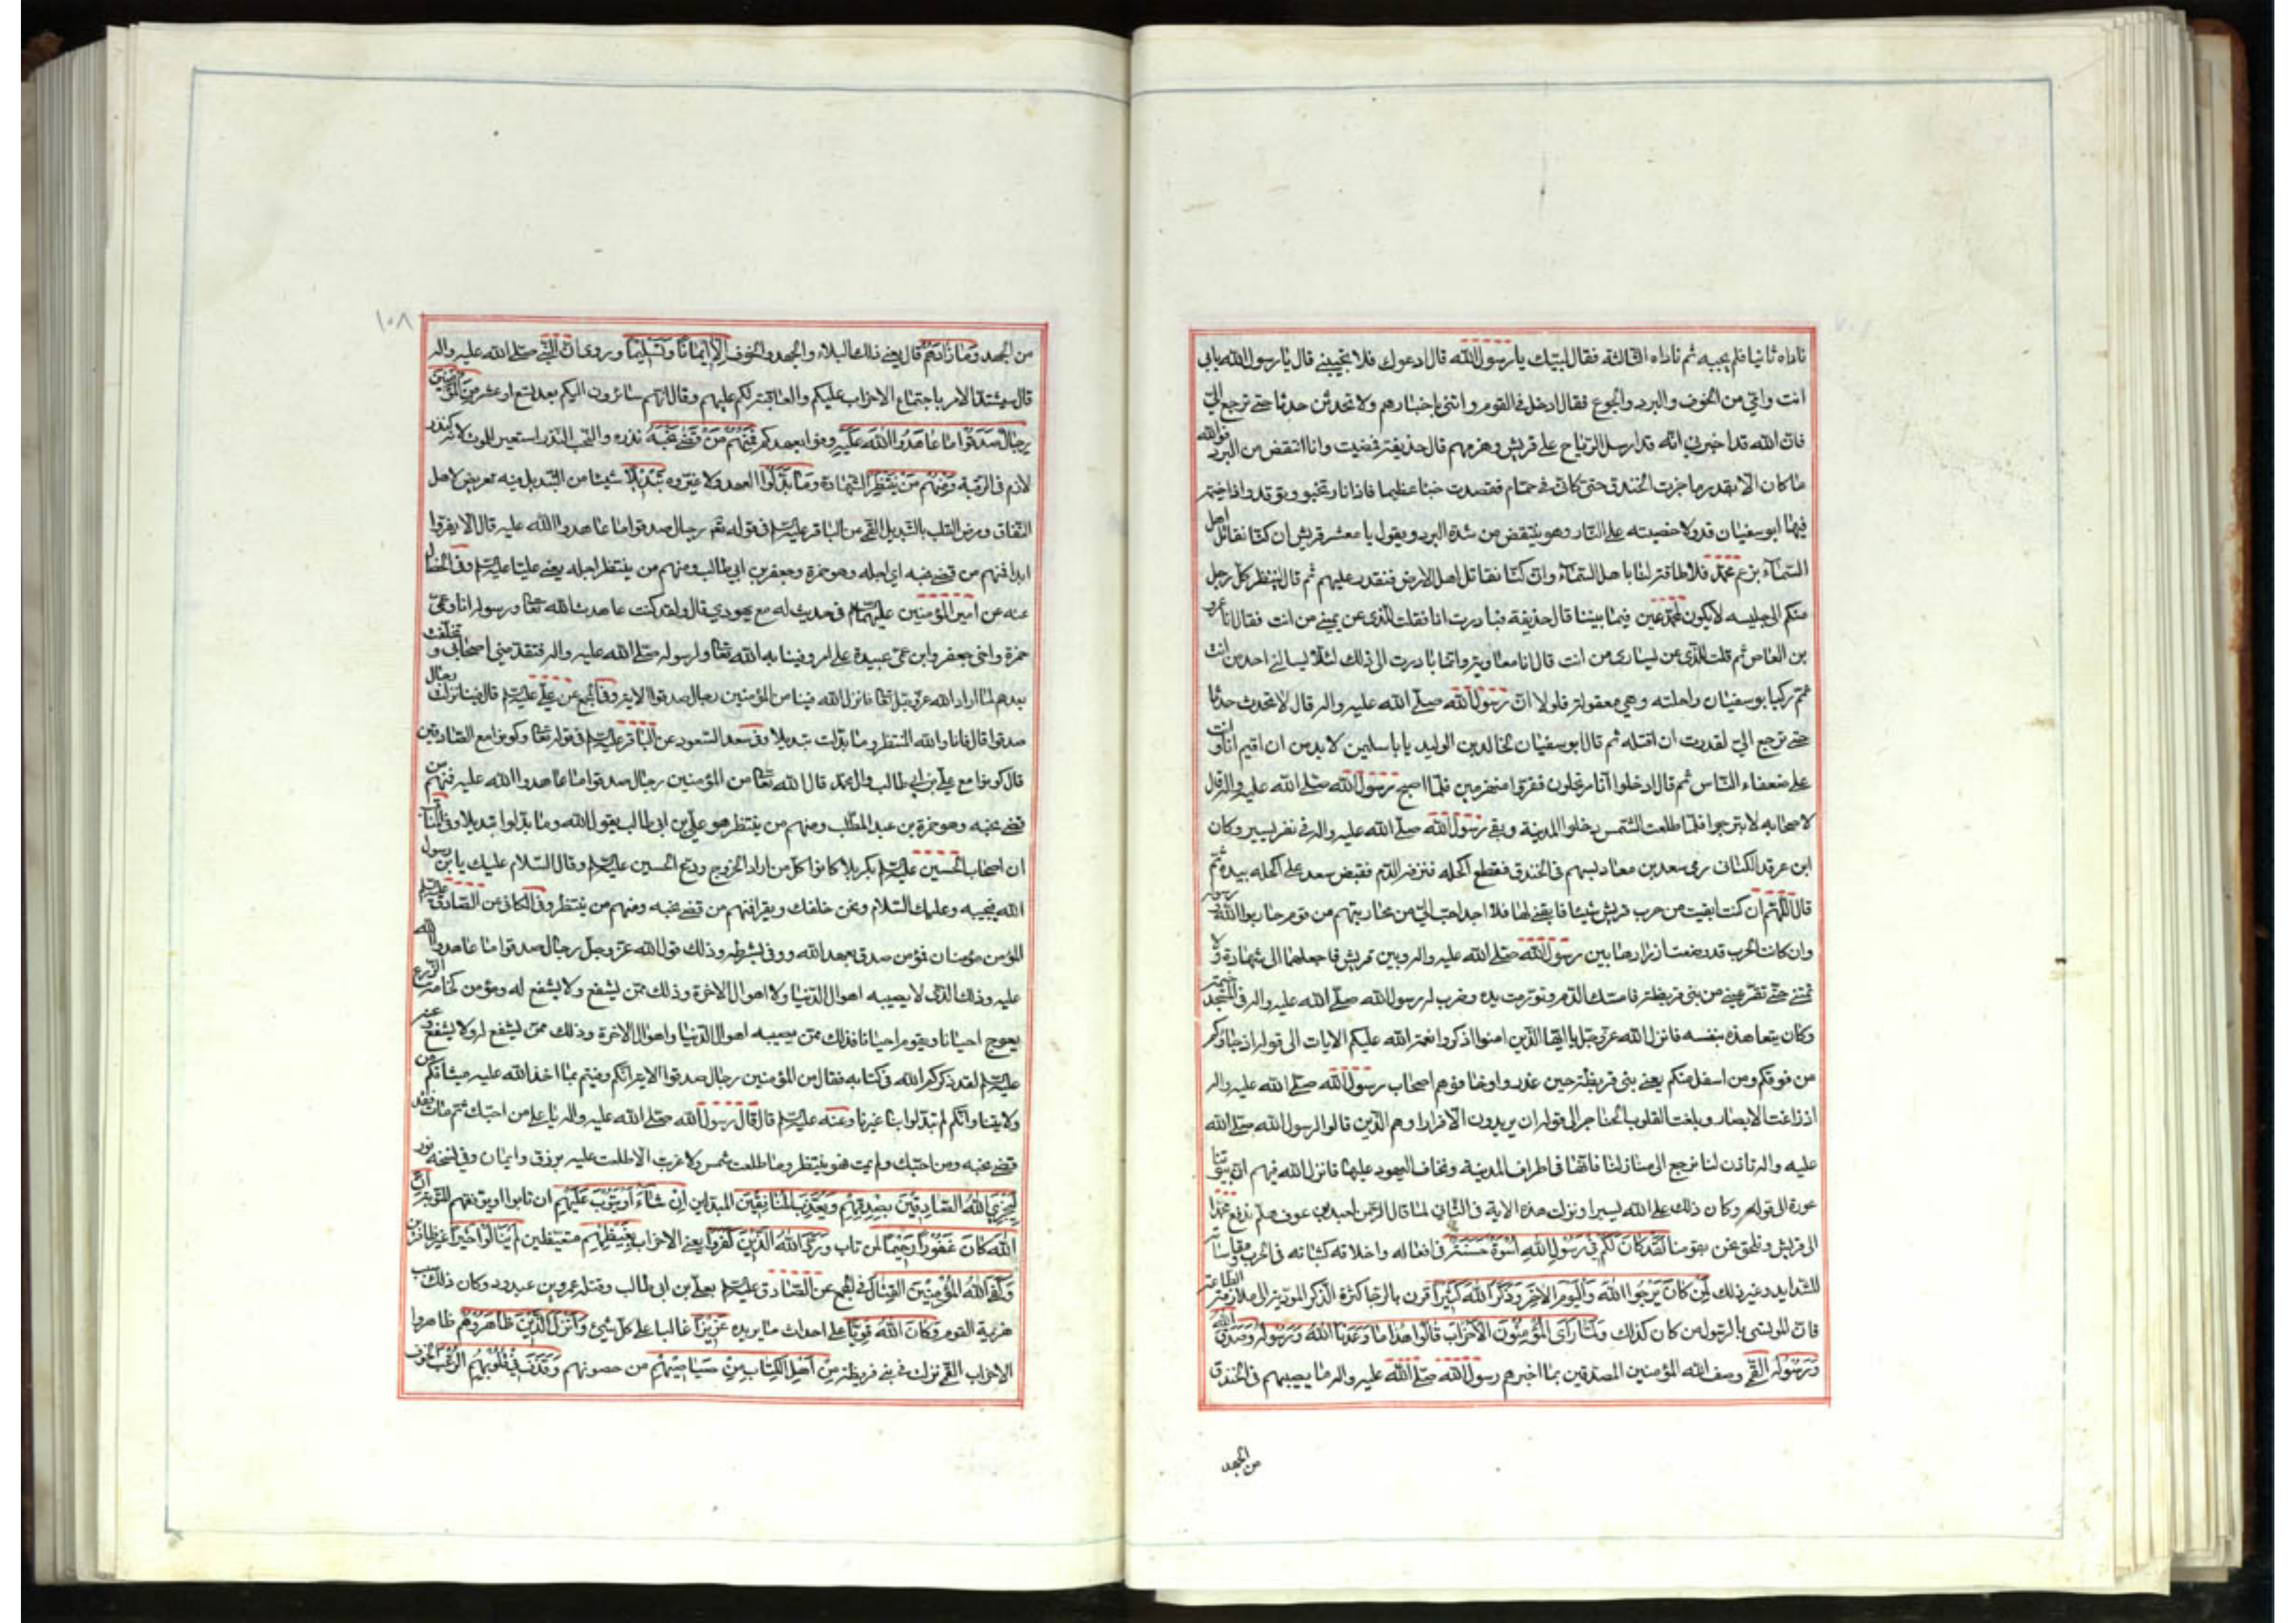 ناداه ثانيا فلم يجبه ثم ناداه الثالثة فقال لبيك يا رسول الله قال ادعوك فلا تجيبني قال يا رسول الله بابي
انت وامي من الخوف والبرد والجوع فقال ادخل في القوم وائتني باخبارهم ولا تحدثن حدثا حتى ترجع الي
فان الله قد اخبرني انه قد ارسل الرياح على قريش وهزمهم قال حذيفة فمضيت وانا انتفض من البرد فوالله
ما كان الا بقدر ما جزت الخندق حتى كاني في حمام فقصدت خباء عظيما فاذا نار تخبو وتوقد واذا خيمة
فيها ابو سفيان قد دلا خصيته على النار وهو ينتفض من شدة البرد ويقول يا معشر قريش ان كنا نقاتل اهل
السماء بزعم محمد فلا طاقة لنا باهل السماء وان كنا نقاتل اهل الارض فنقدر عليهم ثم قال لينظر كل رجل
منكم الى جليسه لا يكون لمحمد عين فيما بيننا قال حذيفة فبادرت انا فقلت للذي عن يميني من انت فقال انا عمرو
بن العاص ثم قلت للذي عن يساري من انت قال انا معاوية وانما بادرت الى ذلك لئلا يسالني احد من انت
ثم ركب ابو سفيان راحلته وهي معقولة فلولا ان رسول الله صلى الله عليه واله قال لا تحدث حدثا
حتى ترجع الي لقدرت ان اقتله ثم قال ابو سفيان لخالد بن الوليد يا با سليمن لا بد من ان اقيم انا وانت
على ضعفاء الناس ثم قال ادخلوا انا مرتحلون ففروا منهزمين فلما اصبح رسول الله صلى الله عليه واله قال
لاصحابه لا تبرحوا فلما طلعت الشمس دخلوا المدينة وبقي رسول الله صلى الله عليه واله في نفر يسير وكان
ابن عرقد الكناني رمى سعد بن معاذ بسهم في الخندق فقطع اكحله فنزفه الدم فقبض سعد على اكحله بيده ثم
قال اللهم ان كنت ابقيت من حرب قريش شيئا فابقني لها فلا احد احب الي من محاربتهم من قوم حاربوا الله ورسوله
وان كانت الحرب قد وضعت اوزارها بين رسول الله صلى الله عليه واله وبين قريش فاجعلها الى شهادة ولا
تمتني حتى تقر عيني من بني قريظة فامسك الدم وتورمت يده وضرب له رسول الله صلى الله عليه واله في المسجد خيمة
وكان يتعاهده بنفسه فانزل الله عز وجل يا ايها الذين امنوا اذكروا نعمة الله عليكم الايات الى قوله اذ جاؤكم
من فوقكم ومن اسفل منكم يعني بني قريظة حين غدروا وخافوهم اصحاب رسول الله صلى الله عليه واله
اذ زاغت الابصار وبلغت القلوب الحناجر الى قوله ان يريدون الا فرارا وهم الذين قالوا لرسول الله صلى الله
عليه واله تاذن لنا نرجع الى منازلنا فانها في اطراف المدينة ونخاف اليهود عليها فانزل الله فيهم ان بيوتنا
عورة الى قوله وكان ذلك على الله يسيرا ونزلت هذه الاية في الثاني لما قال لعبد الرحمن بن عوف هلم ندفع محمدا
الى قريش ونلحق نحن بقومنا لَقَدْ كَانَ لَكُمْ فِي رَسُولِ اللهِ اُسْوَةٌ حَسَنَةٌ في افعاله واخلاقه كثباته في الحرب ومقاساته
للشدايد وغير ذلك لِمَنْ كَانَ يَرْجُوا اللهَ وَالْيَوْمَ الاٰخِرَ وَذَكَرَ اللهَ كَثِيراً قرن بالرجا كثرة الذكر المؤدية الى ملازمة الطاعة
فان المؤتسي بالرسول من كان كذلك وَلَمَّا رَاَى الْمُؤْمِنُونَ الْاَحْزَابَ قَالُوا هٰذَا مَا وَعَدَنَا اللهُ وَرَسُولُهُ وَصَدَقَ اللهُ
وَرَسُولُهُ القمي وصف الله المؤمنين المصدقين بما اخبرهم رسول الله صلى الله عليه واله ما يصيبهم في الخندق
من الجهد
١٠٨
من الجهد وَمَا زَادَهُمْ قال يعني ذلك البلاء والجهد والخوف اِلَّا اِيمَاناً وَتَسْلِيماً وروي ان النبي صلى الله عليه واله
قال سيشتد الامر باجتماع الاحزاب عليكم والعاقبة لكم عليهم وقال انهم سائرون اليكم بعد تسع او عشر مِنَ الْمُؤْمِنِينَ
رِجَالٌ صَدَقُوا مَا عَاهَدُوا اللهَ عَلَيْهِ وفوا بعهدهم فَمِنْهُمْ مَنْ قَضٰى نَحْبَهُ نذره والنحب النذر استعير للموت لانه كنذر
لازم في الرقبة وَمِنْهُمْ مَنْ يَنْتَظِرُ الشهادة وَمَا بَدَّلُوا العهد ولا غيروه تَبْدِيلاً شيئا من التبديل فيه تعريض لاهل
النفاق ومرض القلب بالتبديل القمي عن الباقر عليه السلم في قوله تع رجال صدقوا ما عاهدوا الله عليه قال الا يفروا
ابدا فمنهم من قضى نحبه اي اجله وهو حمزة وجعفر بن ابي طالب ومنهم من ينتظر اجله يعني عليا عليه السلم وفي الخصال
عنه عن امير المؤمنين عليهما السلم في حديث له مع يهودي قال ولقد كنت عاهدت الله تعا ورسوله انا وعمي
حمزة واخي جعفر وابن عمي عبيدة على امر وفينا به لله تعا ولرسوله صلى الله عليه واله فتقدمني اصحابي وتخلفت
بعدهم لما اراد الله عز وجل تعا فانزل الله فينا من المؤمنين رجال صدقوا الاية وفي المجمع عن علي عليه السلم قال فينا نزلت رجال
صدقوا قال فانا والله المنتظر وما بدلت تبديلا وفي سعد السعود عن الباقر عليه السلم في قوله تعا وكونوا مع الصادقين
قال كونوا مع علي بن ابي طالب وال محمد قال الله تعا من المؤمنين رجال صدقوا ما عاهدوا الله عليه فمنهم من
قضى نحبه وهو حمزة بن عبد المطلب ومنهم من ينتظر هو علي بن ابي طالب يقول الله وما بدلوا تبديلا وفي المناقب
ان اصحاب الحسين عليه السلم بكربلا كانوا كل من اراد الخروج ودع الحسين عليه السلم وقال السلام عليك يا بن رسول
الله فيجيبه وعليك السلام ونحن خلفك ويقرا فمنهم من قضى نحبه ومنهم من ينتظر وفي الكافي عن الصادق عليه السلم
المؤمن مؤمنان فمؤمن صدق بعهد الله ووفى بشرطه وذلك قول الله عز وجل رجال صدقوا ما عاهدوا الله
عليه وذلك الذي لا يصيبه اهوال الدنيا ولا اهوال الاخرة وذلك ممن يشفع ولا يشفع له ومؤمن كخامة الزرع
يعوج احيانا ويقوم احيانا فذلك ممن يصيبه اهوال الدنيا واهوال الاخرة وذلك ممن يشفع له ولا يشفع وعنه
عليه السلم لقد ذكركم الله في كتابه فقال من المؤمنين رجال صدقوا الاية انكم وفيتم بما اخذ الله عليه ميثاقكم من
ولايتنا وانكم لم تبدلوا بنا غيرنا وعنه عليه السلم قال قال رسول الله صلى الله عليه واله يا علي من احبك ثم مات فقد
قضى نحبه ومن احبك ولم يمت فهو ينتظر وما طلعت شمس ولا غربت الا طلعت عليه برزق وايمان وفي نسخة نور
لِيَجْزِيَ اللهُ الصَّادِقِينَ بِصِدْقِهِمْ وَيُعَذِّبَ الْمُنَافِقِينَ المبدلين اِنْ شَاءَ اَوْ يَتُوبَ عَلَيْهِمْ ان تابوا او يوفقهم للتوبة اِنَّ
اللهَ كَانَ غَفُوراً رَحِيماً لمن تاب وَرَدَّ اللهُ الَّذِينَ كَفَرُوا يعني الاحزاب بِغَيْظِهِمْ متغيظين لَمْ يَنَالُوا خَيْراً غير ظافرين
وَكَفَى اللهُ الْمُؤْمِنِينَ الْقِتَالَ في المجمع عن الصادق عليه السلم بعلي بن ابي طالب وقتله عمرو بن عبدود وكان ذلك سبب
هزيمة القوم وَكَانَ اللهُ قَوِيّاً على احداث ما يريده عَزِيزاً غالبا على كل شيئ وَاَنْزَلَ الَّذِينَ ظَاهَرُوهُمْ ظاهروا
الاحزاب القمي نزلت في بني قريظة مِنْ اَهْلِ الْكِتَابِ مِنْ صَيَاصِيهِمْ من حصونهم وَقَذَفَ فِي قُلُوبِهِمُ الرُّعْبَ الخوف